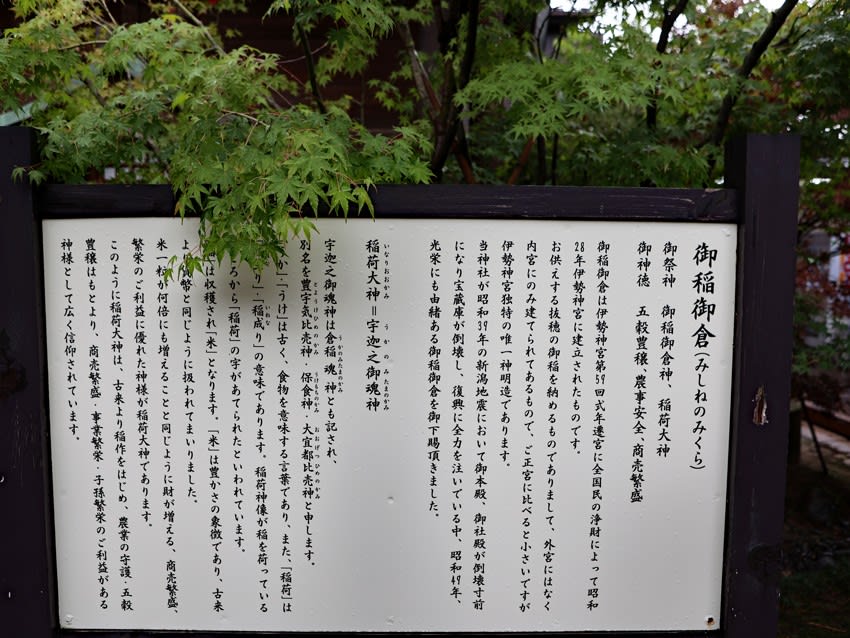 御稲御倉(みしねのみくら)
御祭神 御稲御倉神、稲荷大神
御神徳 五穀豊穣、農事安全、商売繁盛
御稲御倉は伊勢神宮第59回式年遷宮に全国民の浄財によって昭和
28年伊勢神宮に建立されたものです。
お供えする抜穂の御稲を納めるものでありまして、外宮にはなく
内宮にのみ建てられてあるもので、ご正宮に比べると小さいですが
伊勢神宮独特の唯一神明造であります。
当神社が昭和39年の新潟地震において御本殿、御社殿が倒壊寸前
になり宝蔵庫が倒壊し、復興に全力を注いでいる中、昭和49年、
光栄にも由緒ある御稲御倉を御下賜頂きました。
いなりおおかみ うかのみたまのかみ
稲荷大神=宇迦之御魂神
うかのみたまのかみ
宇迦之御魂神は倉稲魂神とも記され、
とようけひめのかみ うけもちのかみ おおげつひめのかみ
別名を豊宇気比売神・保食神・大宜都比売神と申します。
か」「うけ」は古く、食物を意味する言葉であり、また、「稲荷」は
いねな
り」「稲成り」の意味であります。稲荷神像が稲を荷っている
ろから「稲荷」の字があてられたといわれています。
は収穫され「米」となります。「米」は豊かさの象徴であり、古来
よ 幣と同じように扱われてまいりました。
米一粒が何倍にも増えることと同じように財が増える、商売繁盛、
繁栄のご利益に優れた神様が稲荷大神であります。
このように稲荷大神は、古来より稲作をはじめ、農業の守護・五穀
豊穣はもとより、商売繁盛・事業繁栄・子孫繁栄のご利益がある
神様として広く信仰されています。